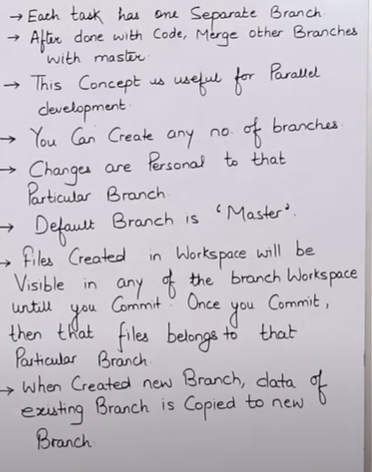 → Each task has one Separate Branch.
→ After done with Code, Merge other Branches
with master.
→ This Concept is useful for Parallel
development.
→ You Can Create any no. of branches.
→ Changes are Personal to that
Particular Branch.
→ Default Branch is 'Master'.
→ Files Created in Workspace will be
Visible in any of the branch Workspace
untill you Commit. Once you Commit,
then that files belongs to that
Particular Branch.
→ When Created new Branch, data of
existing Branch is Copied to new
Branch.